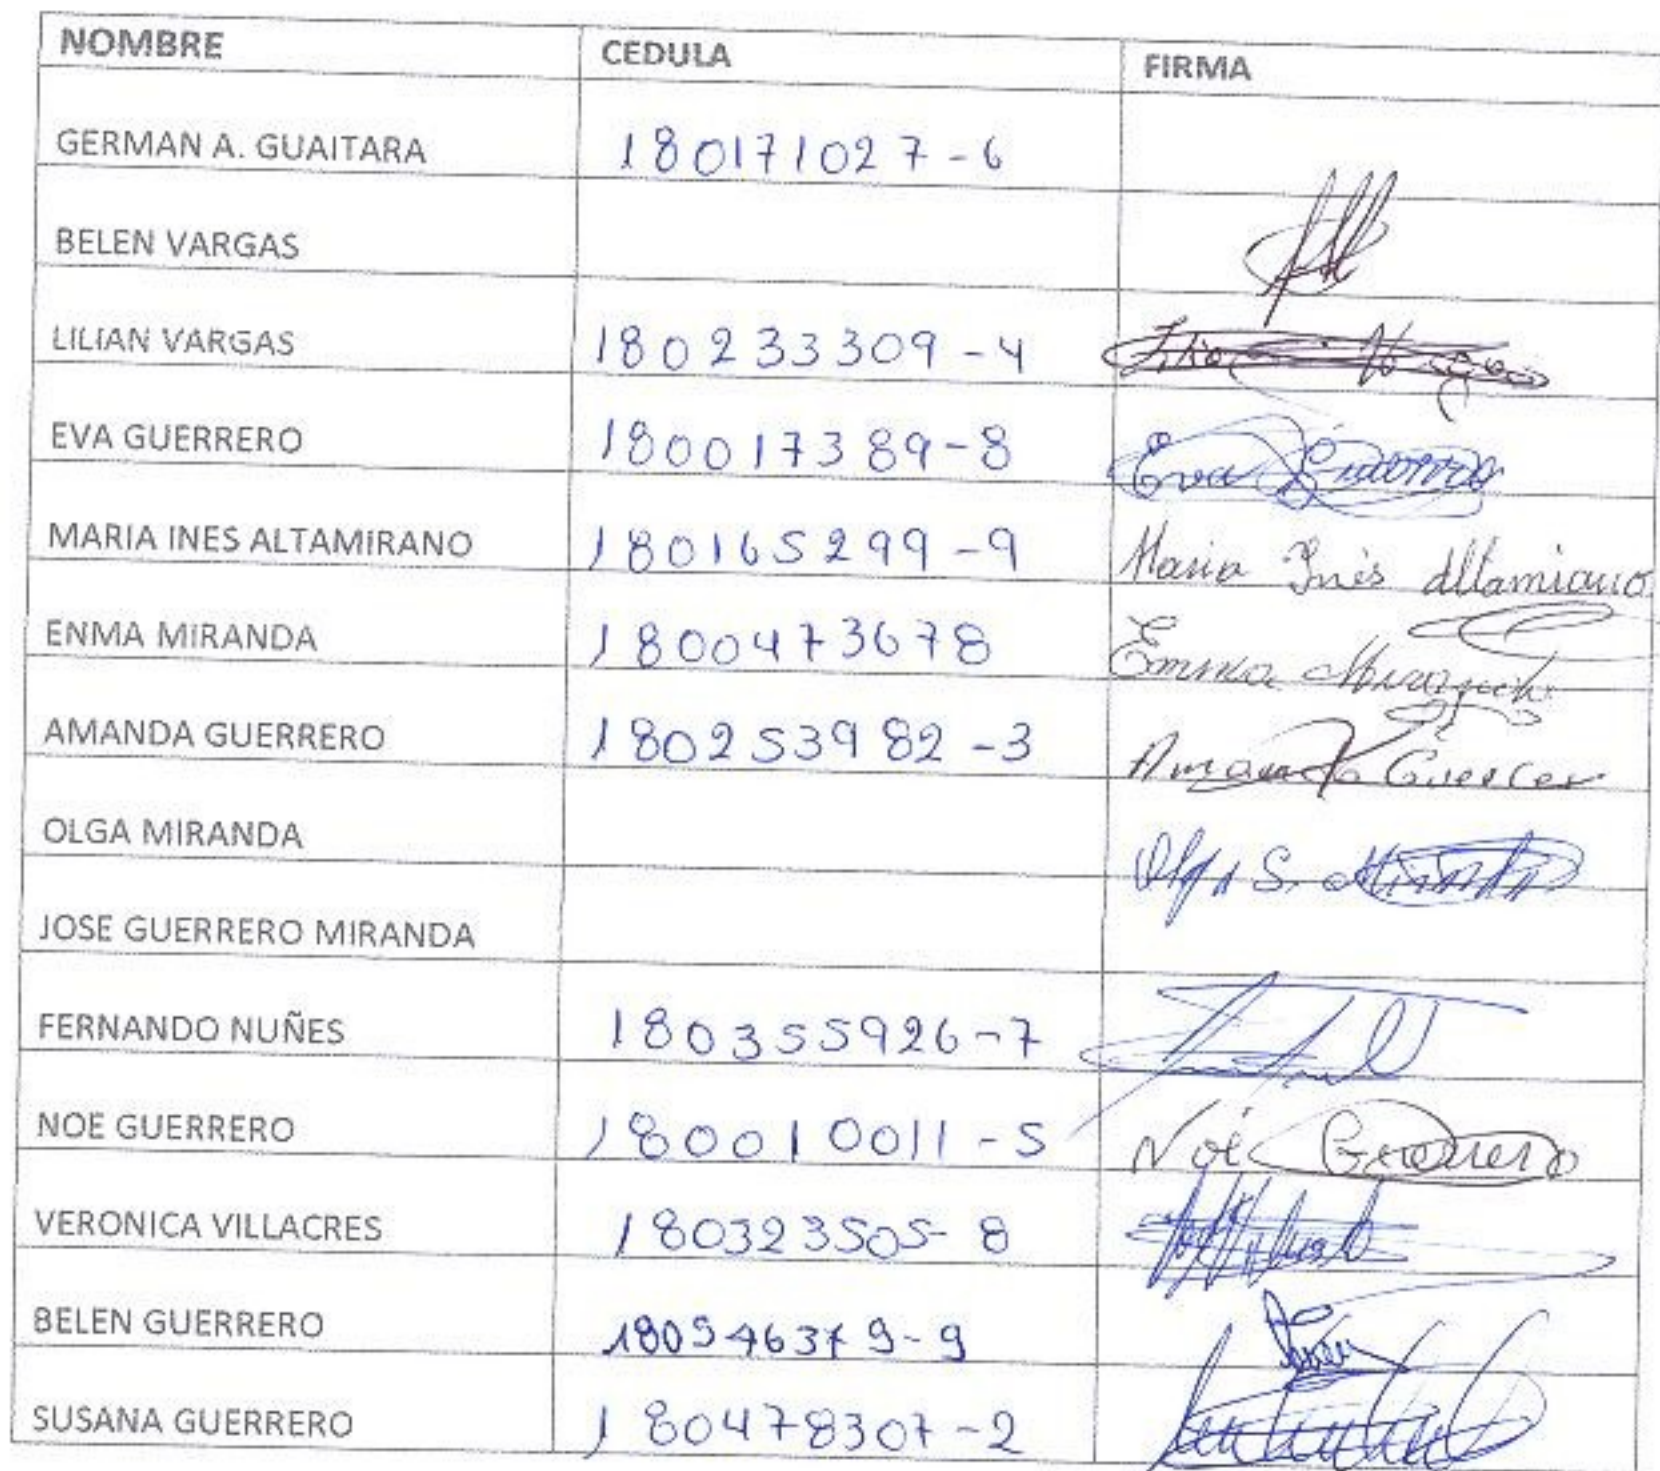 NOMBRE CEDULA FIRMA
GERMAN A. GUAITARA 180171027-6
BELEN VARGAS
LILIAN VARGAS 180233309-4
EVA GUERRERO 180017389-8 Eva Guerrero
MARIA INES ALTAMIRANO 180165299-9 Maria Inés Altamirano
ENMA MIRANDA 1800473678 Emma Miranda
AMANDA GUERRERO 180253982-3 Amanda Guerrer
OLGA MIRANDA Olga S. Miranda
JOSE GUERRERO MIRANDA
FERNANDO NUÑES 180355926-7
NOE GUERRERO 180010011-5 Noé Guerrero
VERONICA VILLACRES 180323505-8
BELEN GUERRERO 180546379-9
SUSANA GUERRERO 180478307-2